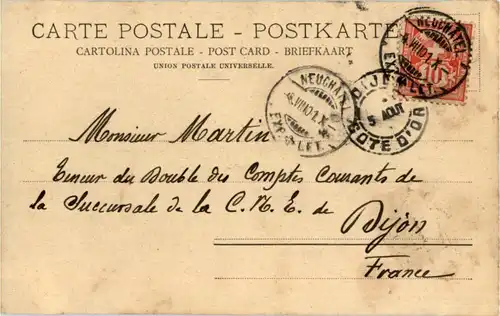 CARTE POSTALE - POSTKARTE
CARTOLINA POSTALE - POST CARD - BRIEFKAART
UNION POSTALE UNIVERSELLE.
NEUCHATEL
EXP. LET.
NEUCHATEL
EXP. LET.
DIJON
5 AOUT
COTE D'OR
10
Monsieur Martin
Teneur du Double des Comptes Courants de
la Succursale de la C. N. E. de
Dijon
France